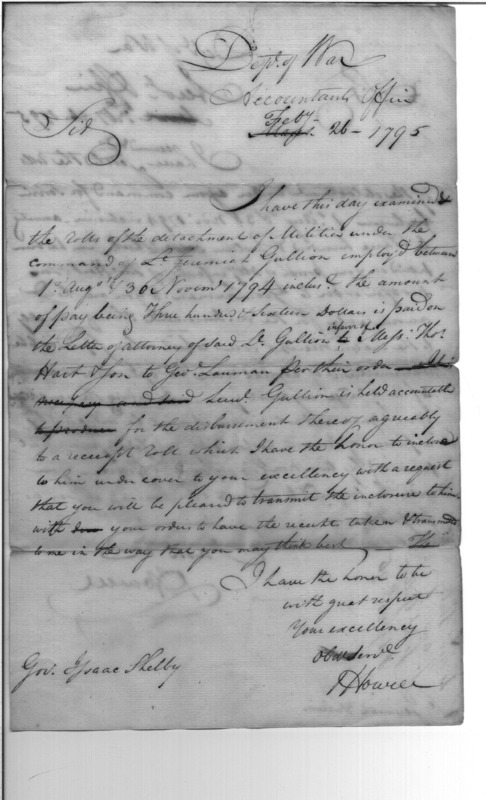 Dept. of War
Accountants Office
Feby
Sir Sept. 26 - 1795
I have this day examined
the rolls of the detachment of Militia under the
command of Lt. Jeremiah Gullion employ'd between
1st Augt. & 30 Novemr. 1794 inclusve. the amount
of pay being Three hundred & Sixteen Dollars is paid on
in favor of
the Letter of attorney of said Lt. Gullion to Messr. Thos.
Hart & Son to Geo: Lauman per their order
and Lieut. Gullion is held accountable
to produce for the disbursement thereof agreeably
to a receipt Roll which I have the honor to inclose
to him under cover to your excellency with a request
that you will be pleased to transmit the inclosure to him
with your orders to have the receipts taken & transmitted
to me in the way that you may think best The
I have the honor to be
with great respect
Your excellency
Obed. Servt.
Gov. Isaac Shelby
J Howell